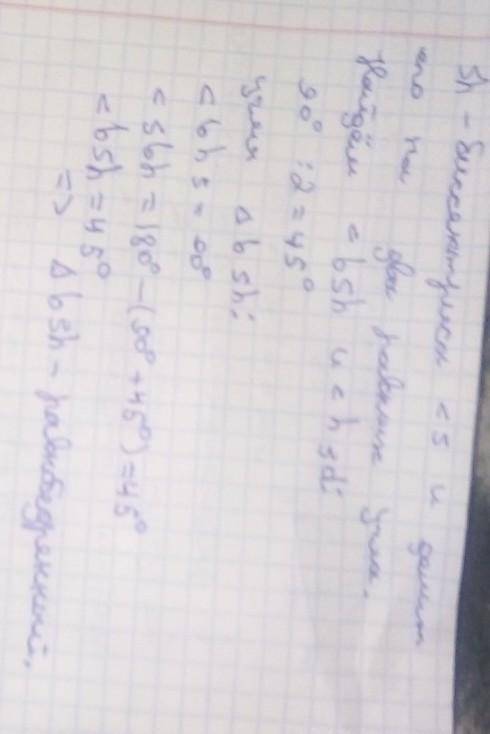 sh - биссектриса < s и делит
его на два равных угла.
Найдём < bsh и < hsd:
90° : 2 = 45°
углы Δ bsh:
< bhs = 90°
< sbh = 180° - (90° + 45°) = 45°
< bsh = 45°
=> Δ bsh - равнобедренный.